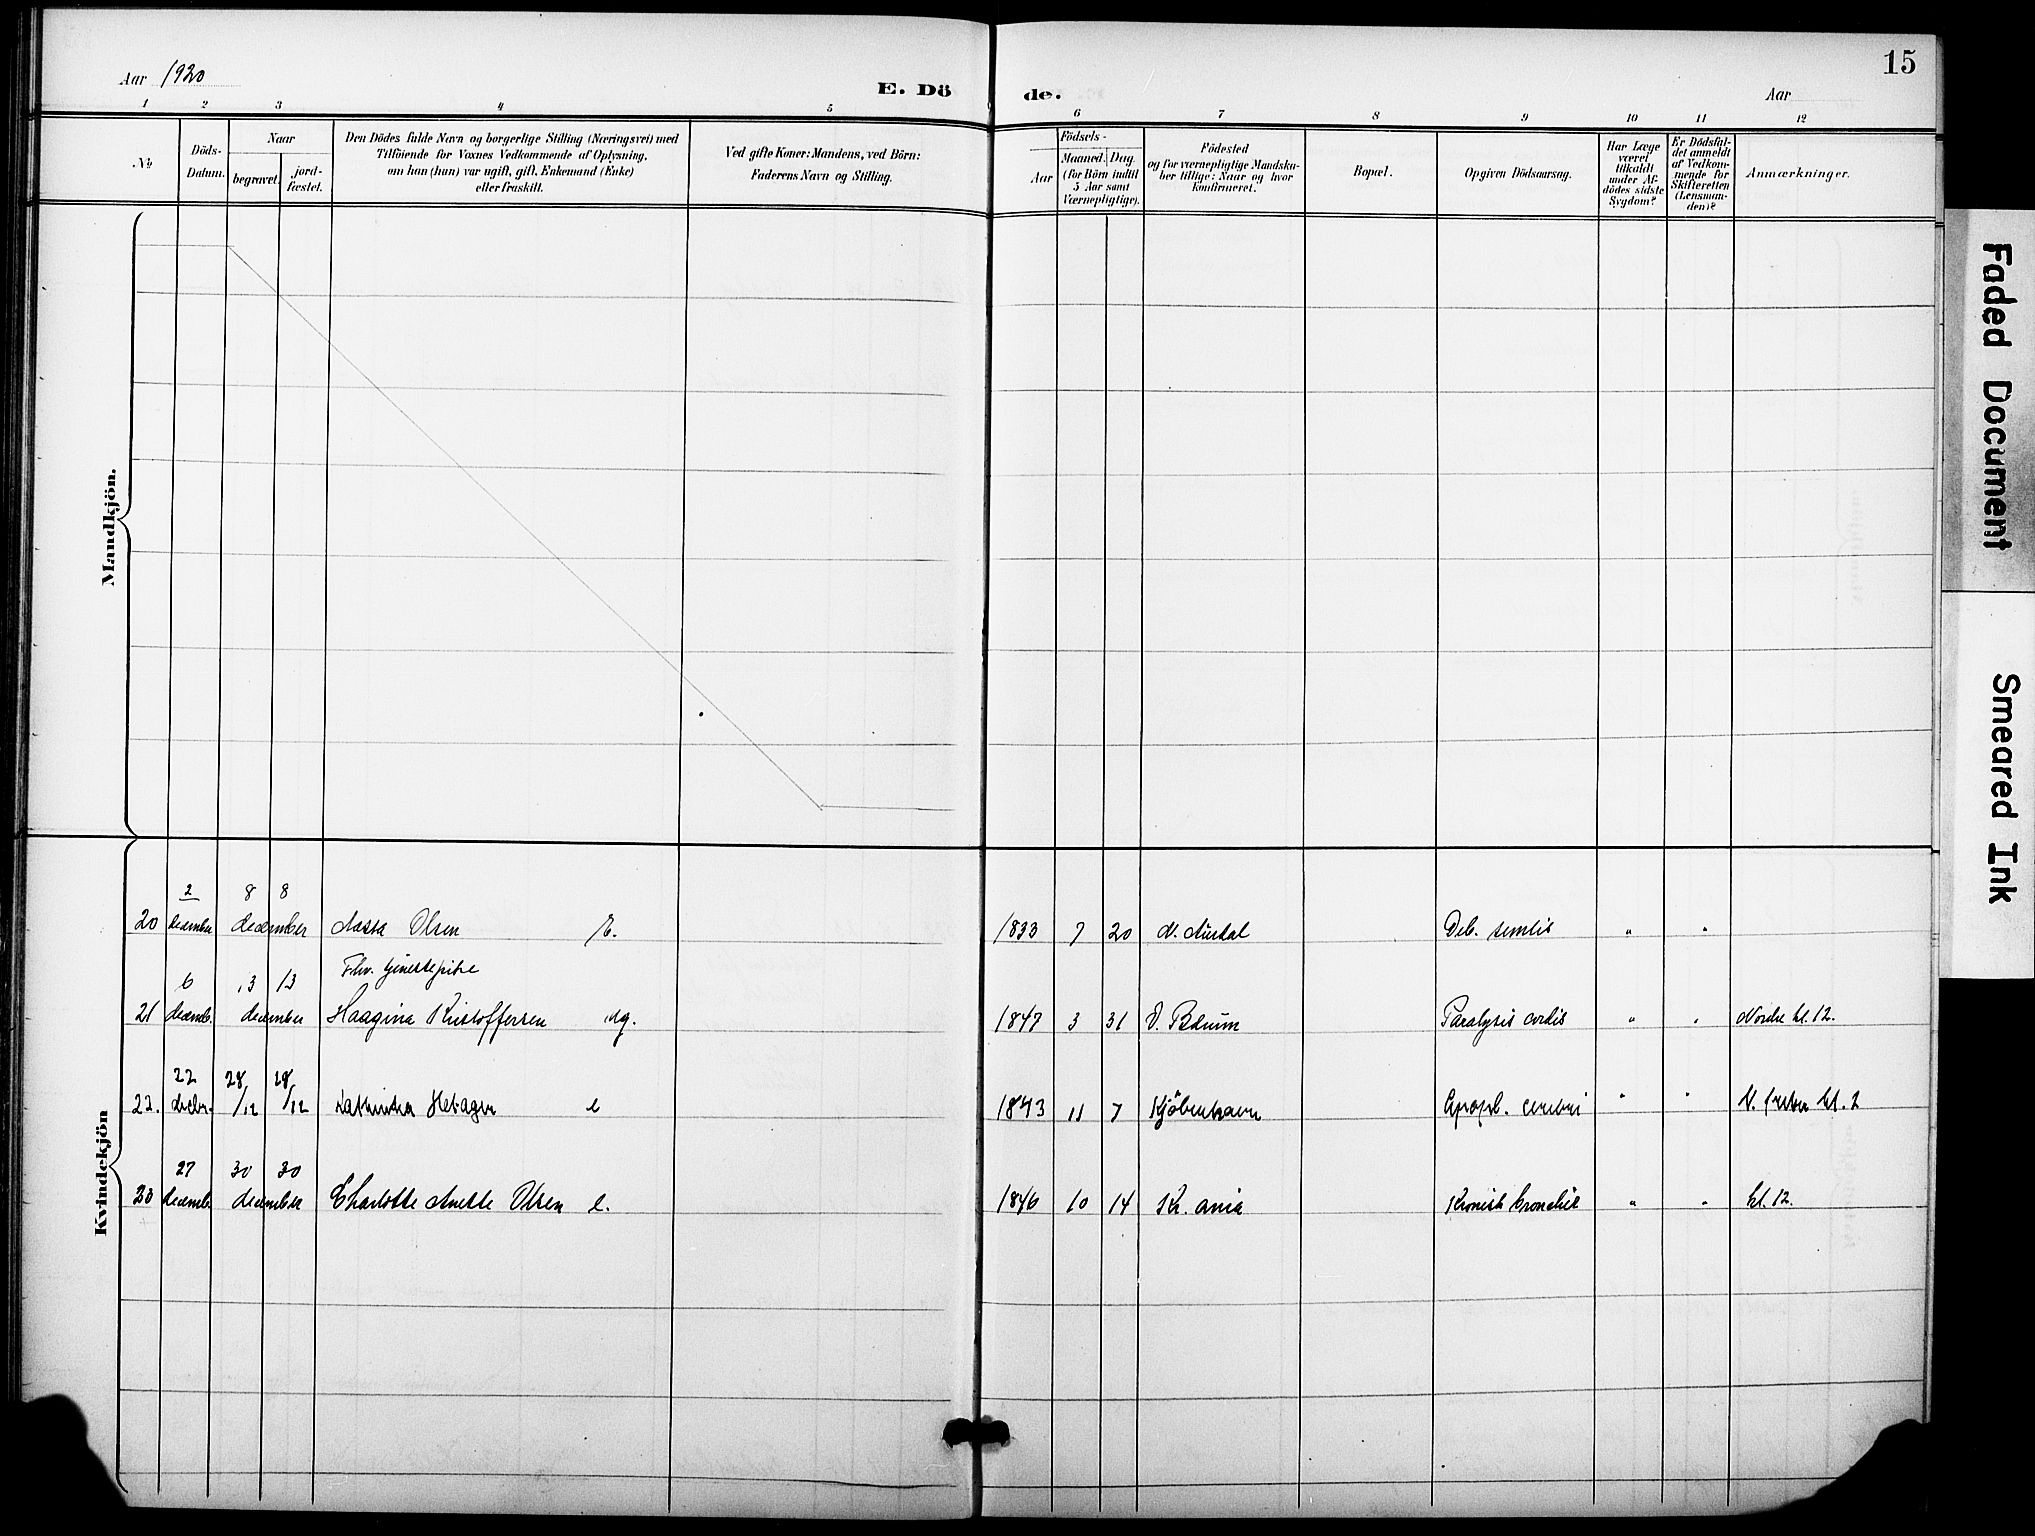 Aar 1920
E. Dö
de.
Aar
15
1 2 3 4 5
6 7 8 9 10 11 12
No
Döds-
Datum.
Naar
begravet.
jord-
fæstet.
Den Dödes fulde Navn og borgerlige Stilling (Næringsvei) med
Tilföiende for Voxnes Vedkommende af Oplysning,
om han (hun) var ugift, gift, Enkemand (Enke)
eller fraskilt.
Ved gifte Koner: Mandens, ved Börn:
Faderens Navn og Stilling.
Födsels-
Aar
Maaned. Dag.
(for Börn indtil
5 Aar samt
Værnepligtige).
Födested
og for værnepligtige Mandska-
ber tillige: Naar og hvor
konfirmeret.
Bopæl.
Opgiven Dödsaarsag.
Har Læge
været
tilkaldt
under Af-
dödes sidste
Sygdom?
Er Dödsfal-
det anmeldt
af Vedkom-
mende for
Skifteretten
(Lensman-
den)?
Anmærkninger.
Mandkjön.
Kvindekjön
2 8 8
20 december december Aasta Olsen E. 1833 7 20 Deb. senilis " "
Fhv.
6 13 13
21 decemb. december Haagina Kristoffersen ug. 1847 3 31 V. Bærum Paralysis cordis " " Nordre kl. 12.
22 28 28
22. decbr. /12 /12 Kathinka Hetager e 1843 11 7 Kjøbenhavn Apopl. cerebri " " kl. 2
27 30 30
23 decemb. december Charlotte Anette Olsen e. 1846 10 14 Kr.ania Kronisk bronchit " " kl. 12.
Faded Document
Smeared Ink